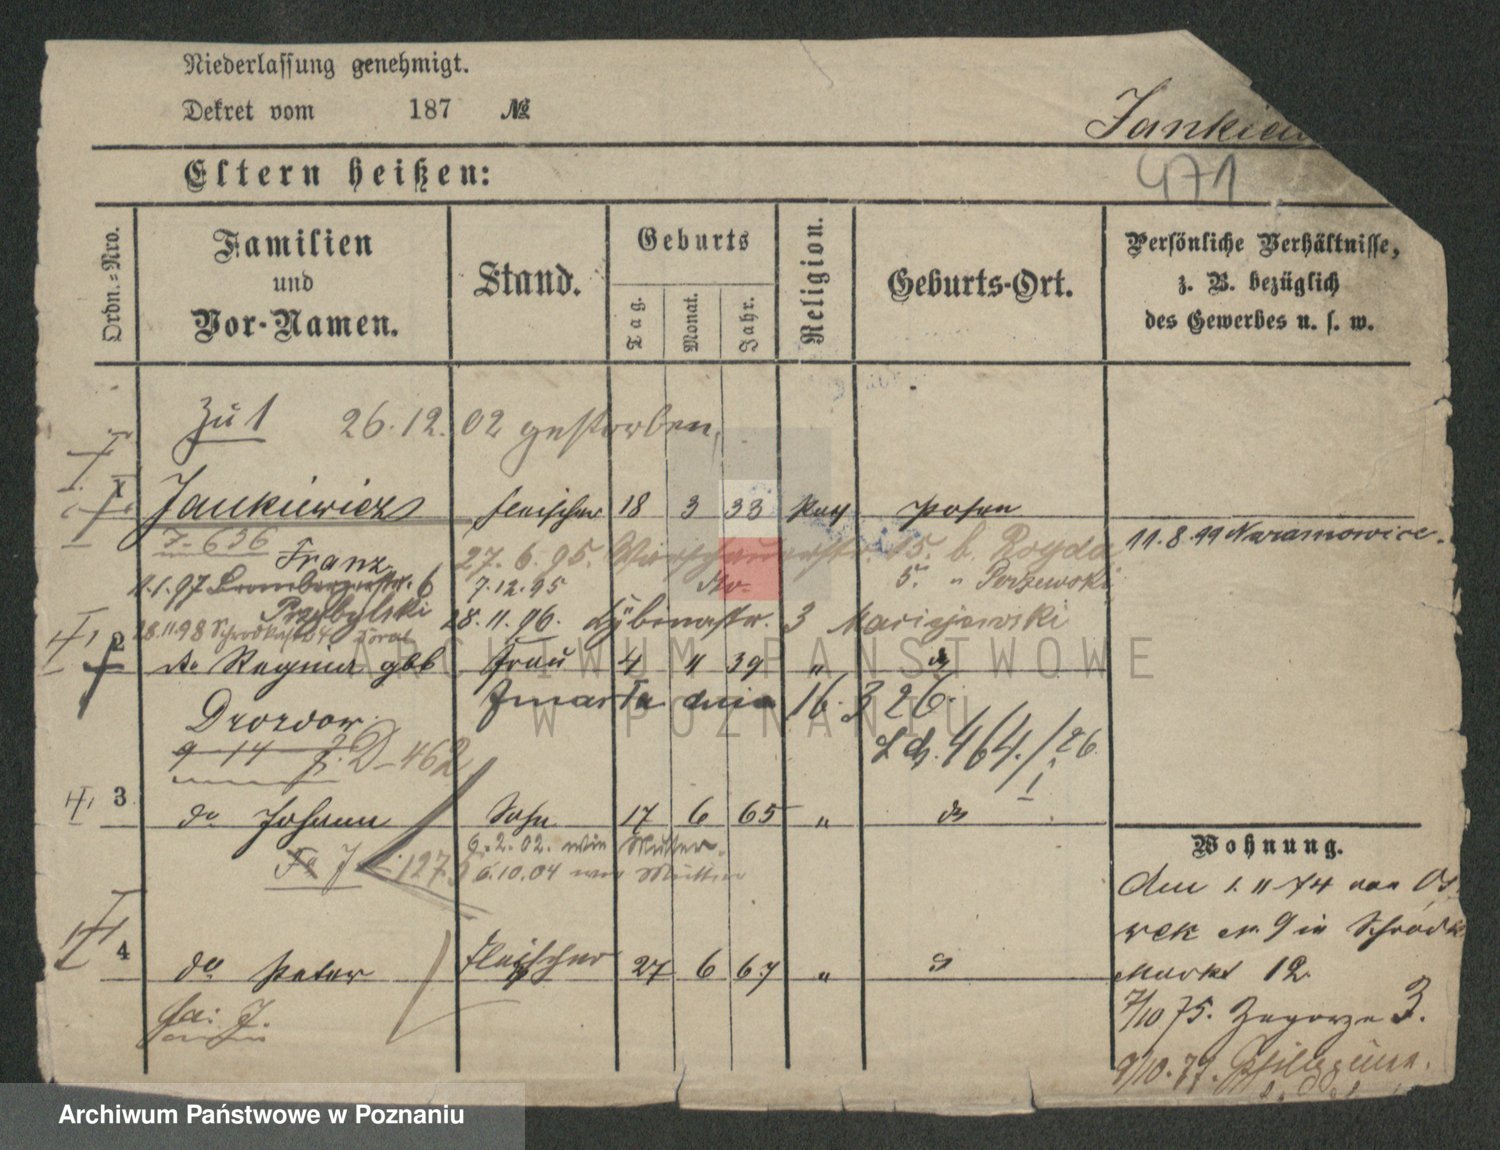 Niederlassung genehmigt.
Dekret vom 187 №
Jankiew
471
Eltern heißen:
Ordn.-Nro.
Familien
und
Vor-Namen.
Stand.
Geburts
Tag.
Monat.
Jahr.
Religion.
Geburts-Ort.
Persönliche Verhältnisse,
z. B. bezüglich
des Gewerbes u. s. w.
Zu 1 26.12.02 gestorben
1 Jankiewicz Fleischer 18 3 33 Posen
7-636
Franz
11.8.99 Naramowice.
27.6.95. 15. b. Rogda
1.1.97 6 7.12.95 do. 5. " Porzewski
Przybylski
28.11.96. 3 Marisjewski
28.11.98
2 do Regina gbb Frau 4 11 39 " do
Drozdow Zmarła dnia 16.3 26.
9 14 J. D-462 L dz. 464./26.
3 do Johann Sohn 17 6 65 " do
6.2.02. wie Mutter.
Fa J 127 6.10.04 wie Mutter
Wohnung.
Am 1. 11 74 von Ost
rek N. 9 in Schrodk
Markt 12
4 do Peter Fleischer 27 6 67 " do
Fa: J.
7/10 75. Zagorze 3.
9/10. 77.
ARCHIWUM PAŃSTWOWE
W POZNANIU
Archiwum Państwowe w Poznaniu